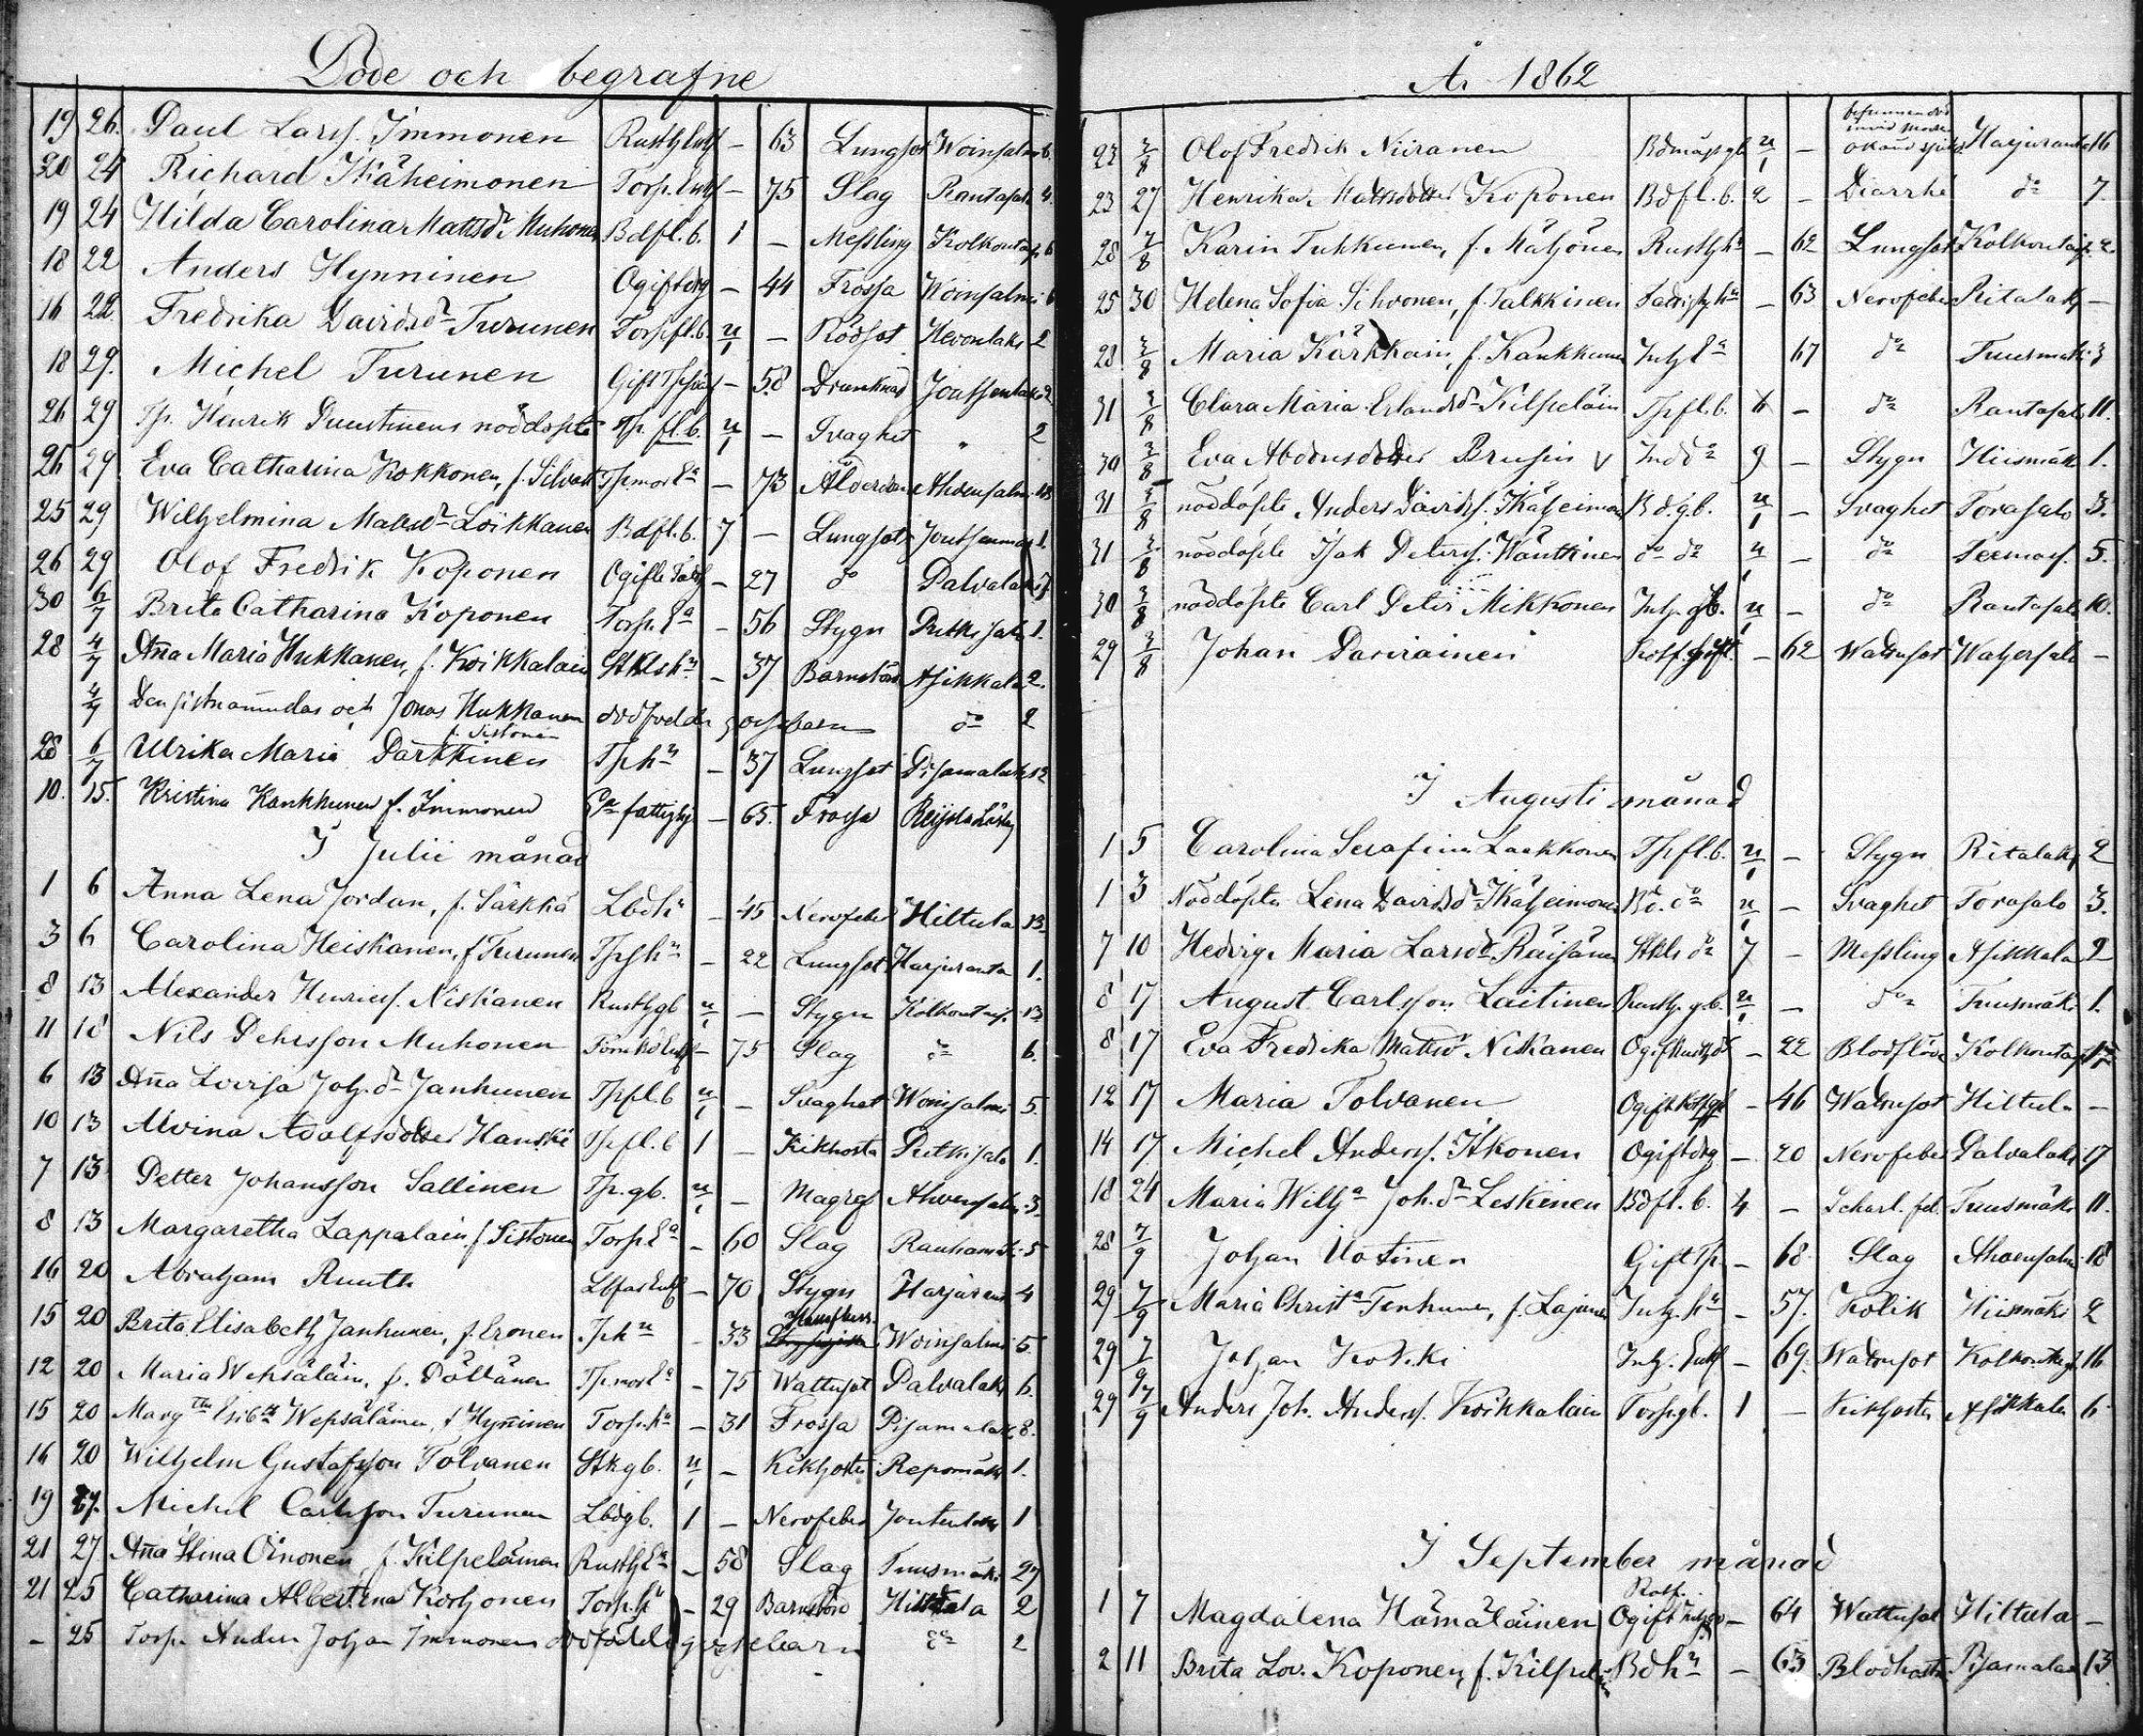 Döde och begrafne
19 26. Paul Larss. Immonen Rusth Enkl – 63 Lungsot Woinsalm 6.
20 24 Richard Ikäheimonen Torp. Enkl – 75 Slag Rantasal 4.
19 24 Hilda Carolina Mattsdr Muhonen Bdfl. b. 1 – Messling Kolkontaip. 6
18 22 Anders Hynninen Ogift drg – 44 Frossa Woinsalmi 6
16 22 Fredrika Davidsdr Turunen Torp.fl.b. u/1 – Rödsot Kevonlaks 2
18 29. Michel Turunen Gift – 58 Drunknad Joutsenlaks 2
26 29 Tp. Henrik Puustinens nöddöpte Tp. fl. b. u/1 – Svaghet " 2
26 29 Eva Catharina Kokkonen, f. Silvast Tp mor Ea – 73 Ålderdom Ahvensalm. 18
25 29 Wilhelmina Mattsdr Loikkanen Bdfl. b. 7 – Lungsot Joutsenmäk 1.
26 29 Olof Fredrik Koponen Ogift – 27 do Palvalaks 7
30 6/7 Brita Catharina Koponen Torp. Ea – 56 Stygn Pitkisalo 1.
28 4/7 Ana Maria Hukkanen, f. Koikkalain Stklsh – 37 Barnsäng Asikkala 2.
4/7 Den sistnämndas och Jonas Hukkanen dödfödda gossebarn do 2
28 6/7 Ulrika Maria Parkkinen f. Sistonen Tph – 37 Lungsot Pisamalaks 12
10. 15. Kristina Kankkunen f. Immonen Ea fattighj – 65. Frossa
I Julii månad
1 6 Anna Lena Jordan, f. Särkkä Lbdh – 45 Nervfeber Hiltula 13
3 6 Carolina Heiskanen, f Turunen Tpsh – 22 Lungsot Harjuranta 1.
8 13 Alexander Henricss. Niskanen Rusth gb u/1 – Stygn Kolkontaip. 13
11 18 Nils Pehrsson Muhonen – 75 Slag do 6.
6 13 Ana Lovisa Joh.dr Janhunen Tpfl.b u/1 – Svaghet Woinsalmi 5.
10 13 Alvina Adolfsdotter Hanski Tpfl.b 1 – Kikhosta Pitkisalo 1.
7 13 Petter Johansson Sallinen Tp. gb. u/1 – Magref Ahvensalm. 3.
8 13 Margaretha Lappalain, f Sistonen Torp. Ea – 60 Slag Rauhamäk 5
16 20 Abraham Ruuth – 70 Stygn Harjurant 4
15 20 Brita Elisabeth Janhunen, f. Eronen Tph – 33 Woinsalmi 5.
12 20 Maria Wepsäläin, f. Pöllänen Tp mor Ea – 75 Wattusot Palvalaks 6.
15 20 Margtha Elisbth Wepsäläinen, f Hyninen Torp. h – 31 Frossa Pisamalaks 8.
16 20 Wilhelm Gustafsson Tolvanen Stkgb. u/1 – Kikhosta Repomäki 1.
19 27. Michel Carlsson Turunen Lbdgb. 1 – Nervfeber 1
21 27 Ana Stina Oinonen, f. Kilpeläinen Rusth Ea – 58 Slag Tuusmäki 27
21 25 Catharina Albertina Korhonen Torp. h – 29 Barnsbörd Hiltula 2
– 25 Torp. Anders Johan Immonens dödfödde gossebarn do 2
År 1862
22 3/8 Olof Fredrik Niiranen u/1 – Harjuranta 16
23 27 Henrika Mattsdotter Koponen Bdfl. b. 2 – Diarrhé do 7.
28 3/8 Karin Tukkunen, f. Mätönen Rusth h – 62 Lungsot Kolkontaip. 2
25 30 Helena Sofia Sihvonen, f. Talkkinen – 63 Nervfeber Ritalaks –
28 3/8 Maria Kärkkäin, f. Kankkunen Inh. Ea 67 do Tuusmäk 3
31 3/8 Clara Maria Erlandsdr Kilpeläin Tp fl. b. – do Rantasalo 11.
30 3/8 Eva Abdonsdotter Brusin v 9 – Stygn Hiismäk 1.
31 3/8 nöddöpte Anders Davidss. Ikäheimon Bd.g.b. u/1 – Svaghet Torasalo 3.
31 3/8 nöddöpte Isak Peterss. Wänttinen do do u/1 – do Teemas. 5.
30 3/8 nöddöpte Carl Peter Mikkonen Inh. gb. u/1 – do Rantasalo 10.
29 3/8 Johan Parviainen – 62 Wattusot Watjersalo –
I Augusti månad
1 5 Carolina Serafina Laakkonen Tpfl. b. u/1 – Stygn Ritalaks 2
1 3 Nöddöpta Lena Davidsdr Ikäheimonen Bd. do u/1 – Svaghet Torasalo 3.
7 10 Hedvig Maria Larsdr Räisänen Stkls do 7 – Messling Asikkala 2
8 17 August Carlsson Laitinen Rusth. g.b. u/1 – do Tuusmäki 1.
8 17 Eva Fredrika Mattsdr Niskanen – 22 Blodflöde Kolkontaip
12 17 Maria Tolvanen – 46 Wattusot Hiltula –
14 17 Michel Anderss. Ikonen Ogift drg – 20 Nervfeber Palvalaks 17
18 24 Maria Willha Joh.dr Leskinen Bdfl. b. 4 – Scharl. feb. Tuusmäki 11.
28 7/9 Johan Uotinen Gift Tp. – 68 Slag Ahvensalm 18
29 7/9 Maria Christa Tenhunen, f. Lajunen Inh. h – 57. Kolik Hiismäki 2
29 7/9 Johan Koski Inh. Enkl – 69. Wattusot Kolkontaip 16
29 7/9 Anders Joh. Anderss. Koikkalain Torp.gb. 1 – Kikhosta Asikkala 6
I September månad
1 7 Magdalena Hämäläinen Ogift – 64 Wattusot Hiltula –
2 11 Brita Lov. Koponen, f. Kilpeläin Bdh – 63 Blodhosta Pisamalaks 13